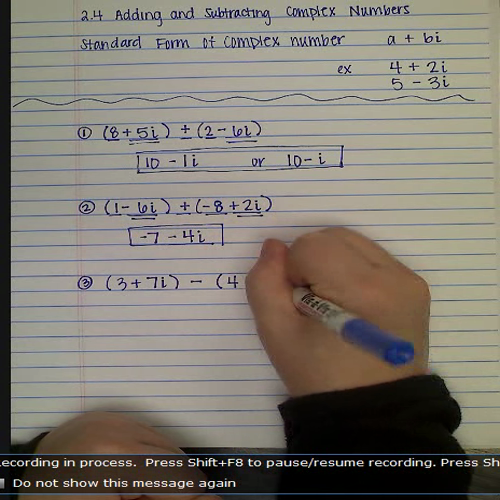 2.4 Adding and Subtracting Complex Numbers
Standard Form of Complex number a + bi
ex 4 + 2i
5 - 3i
① (8 + 5i) + (2 - 6i)
10 - 1i or 10 - i
② (1 - 6i) + (-8 + 2i)
-7 - 4i
③ (3 + 7i) - (4
Recording in process. Press Shift+F8 to pause/resume recording. Press Sh
Do not show this message again